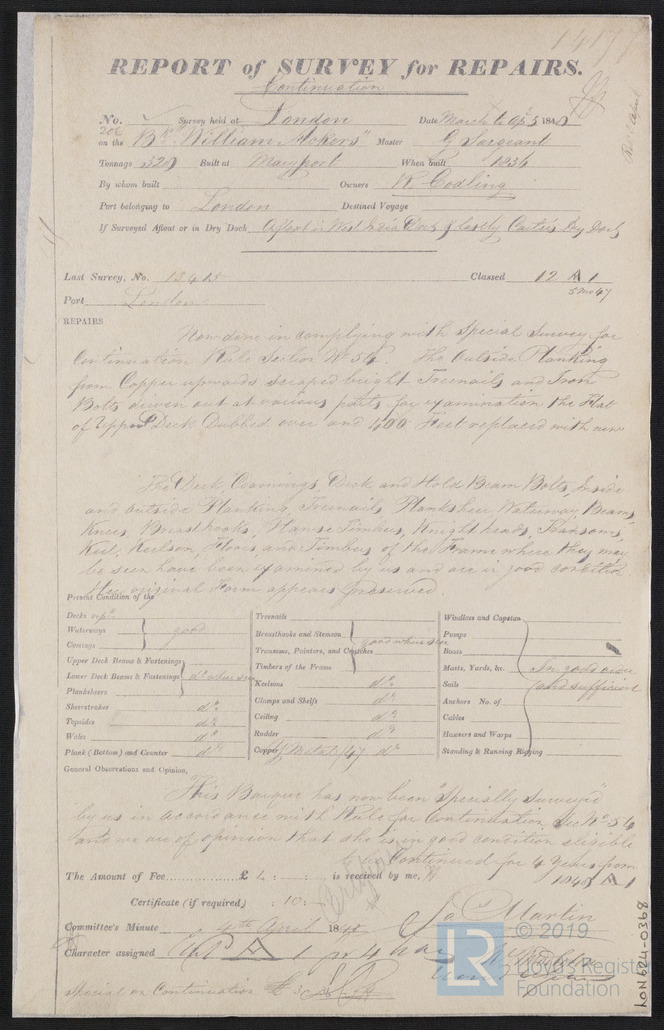 REPORT of SURVEY for REPAIRS.
Continuation
No. Survey held at London Date March & Ap 5 1848
206
on the Bk "William Mokers" Master G Sargeant
Tonnage 320 Built at Maryport When built 1836
By whom built Owners R Cosling
Port belonging to London Destined Voyage
If Surveyed Afloat or in Dry Dock Afloat in West India Dock & lastly Dry Dock
Last Survey, No. 13415 Classed 12 A 1
5 Mo 47
Port London
REPAIRS
Now done in complying with Special Survey for
Continuation Rule Section No 56. The Outside Planking
from Copper upwards scraped bright Treenails and Iron
Bolts driven out at various parts for examination the Flat
of Upper Deck Dubbed over and 400 Feet replaced with new
The Deck Comings Deck and Hold Beam Bolts, Inside
and outside Planking, Treenails, Planksheer, Waterway, Beams
Knees, Breasthooks, Hawse Timbers, Knight heads, Transoms,
Keel, Keelson, Floors and Timbers of the Frame where they may
be seen have been examined by us and are in good condition
the original Form appears preserved.
Present Condition of the
Decks repd
Waterways
Comings
good
Upper Deck Beams & Fastenings
Lower Deck Beams & Fastenings
Planksheers
do where seen
Sheerstrakes do
Topsides do
Wales do
Plank (Bottom) and Counter do
Treenails
Breasthooks and Stemson
Transoms, Pointers, and Crutches
Timbers of the Frame
good where seen
Keelsons do
Clamps and Shelfs do
Ceiling do
Rudder do
Copper Y Metal /47 do
Windlass and Capstan
Pumps
Boats
Masts, Yards, &c.
Sails
Anchors No. of
Cables
Hawsers and Warps
Standing & Running Rigging
In good order
and sufficient
General Observations and Opinion,
This Barque has now been "Specially Surveyed"
by us in accordance with Rule for Continuation Sec No 56
and we are of opinion that she is in good condition eligible
to be Continued for 4 Years from
1848 A 1
The Amount of Fee £ 4 : - : is received by me,
Certificate (if required) : 10 :
Jo Martin
Committee's Minute 4th April 1848
Character assigned A 1 for 4 years
Special on Continuation £ 3
© 2019
LR
Lloyd's Register
Foundation
LON624-0368